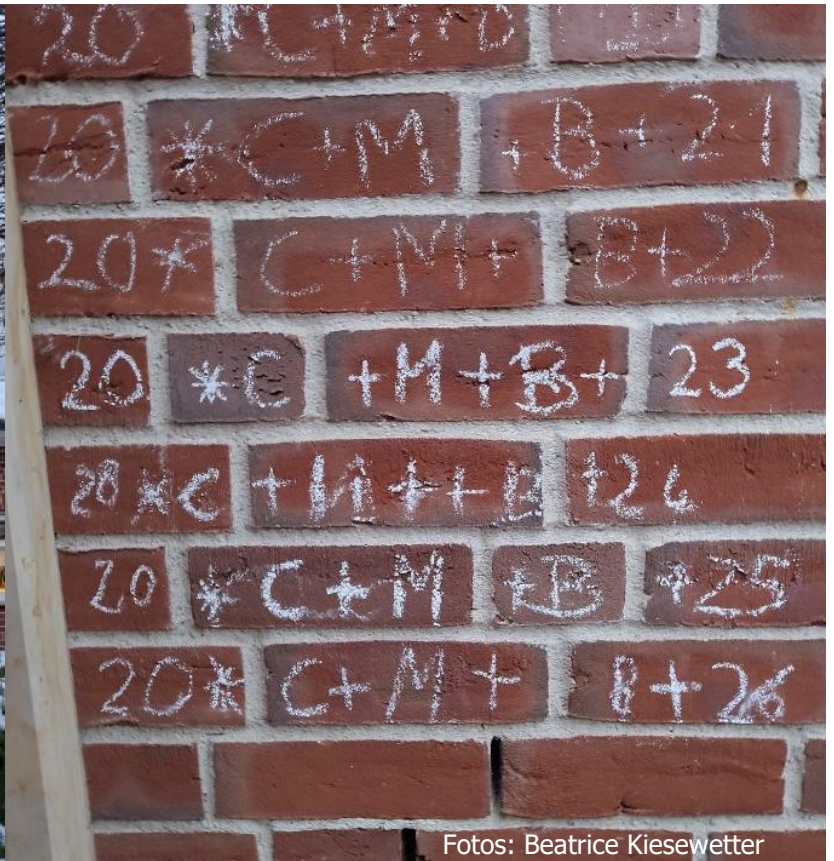 20 *C+M+B
20 *C+M +B+21
20* C+M+ B+22
20 *C +M+B+ 23
20 *C +M++B +24
20 *C+M +B +25
20* C+M+ B+26
Fotos: Beatrice Kiesewetter